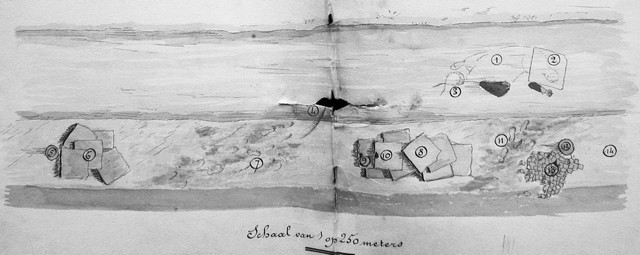 1
2
3
4
5
6
7
9
10
8
11
13
12
14
Schaal van 1 op 250 meters